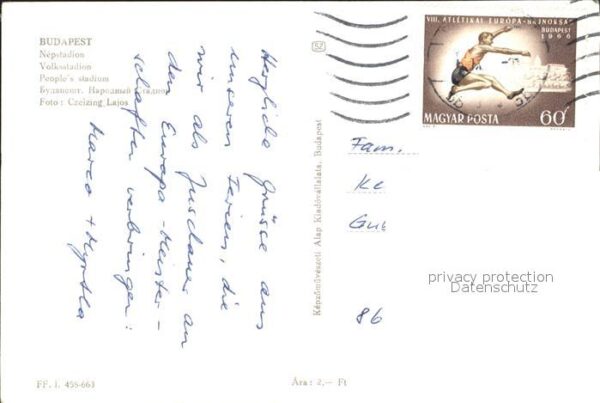 BUDAPEST
Népstadion
Volksstadion
People's stadium
Будапешт. Народный Стадион
Foto: Czeizing Lajos
Herzliche Grüsse aus
unseren Ferien, die
wir als Zuschauer an
den Europa-Meister-
schaften verbringen:
Marco +
FF. I. 458-663
Képzőművészeti Alap Kiadóvállalata, Budapest
Ára: 2,— Ft
VIII. ATLÉTIKAI EURÓPA-BAJNOKSÁG
BUDAPEST
1966
MAGYAR POSTA
60f
Fam.
Ke
Gue
86
privacy protection
Datenschutz